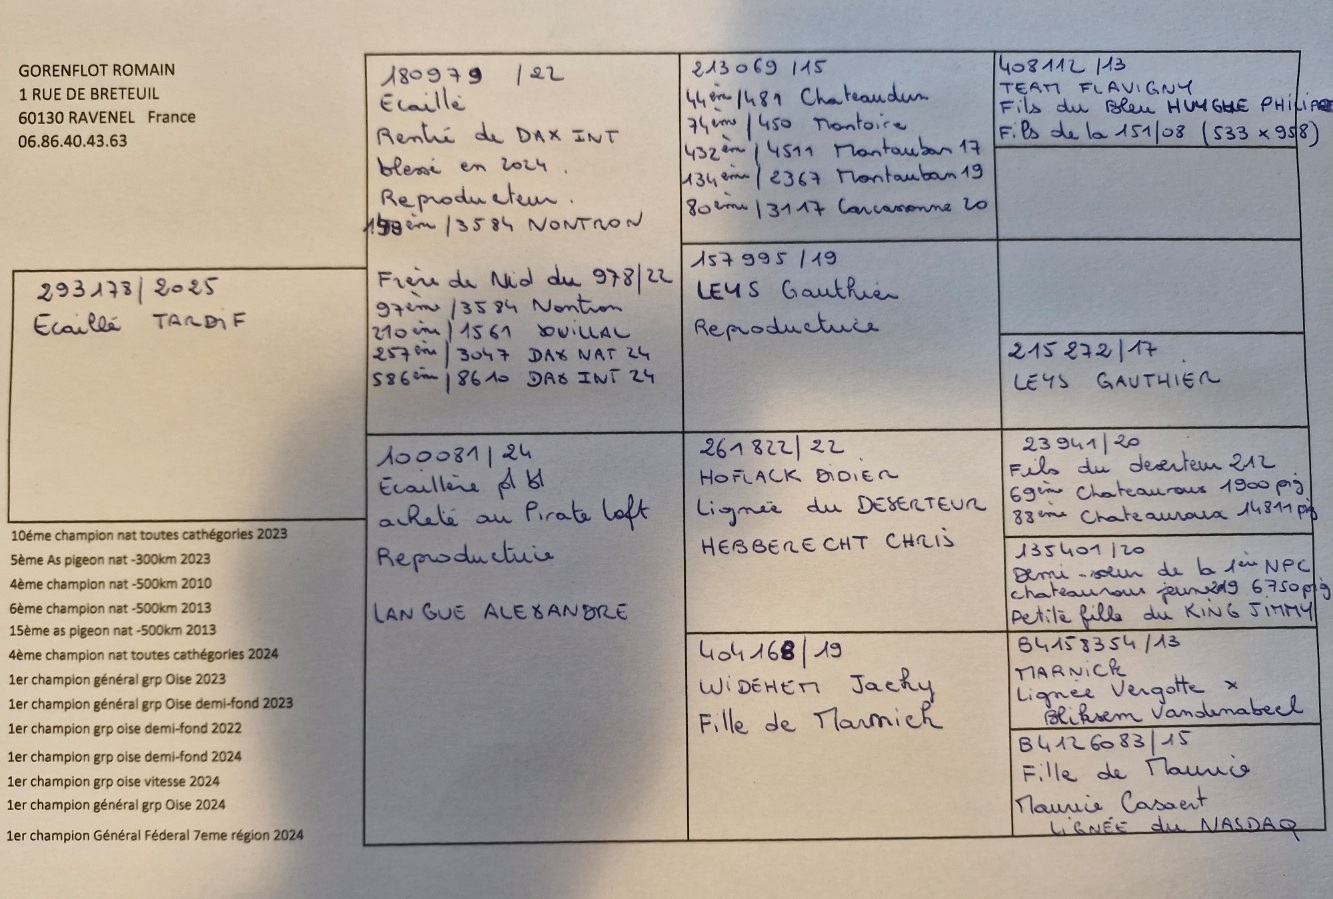 GORENFLOT ROMAIN
1 RUE DE BRETEUIL
60130 RAVENEL France
06.86.40.43.63
293178/2025
Ecaillé TARDIF
10éme champion nat toutes cathégories 2023
5ème As pigeon nat -300km 2023
4ème champion nat -500km 2010
6ème champion nat -500km 2013
15ème as pigeon nat -500km 2013
4ème champion nat toutes cathégories 2024
1er champion général grp Oise 2023
1er champion général grp Oise demi-fond 2023
1er champion grp oise demi-fond 2022
1er champion grp oise demi-fond 2024
1er champion grp oise vitesse 2024
1er champion général grp Oise 2024
1er champion Général Féderal 7eme région 2024
180979 /22
Ecaillé
Rentré de DAX INT
blessé en 2024.
Reproducteur.
ème /3584 NONTRON
Frère de Nid du 978/22
97ème /3584 Nontron
210èm /1561 SOUILLAC
257èm /3047 DAX NAT 24
586èm /8610 DAX INT 24
100081/24
Ecaillère pl bl
acheté au Pirate Loft
Reproductrice
LANGUE ALEXANDRE
213069/15
44èm/481 Chateaudun
74èm/450 Montoire
432èm/4511 Montauban 17
134ème/2367 Montauban 19
80ème/3117 Carcasonne 20
157995/19
LEYS Gauthier
Reproductrice
261822/22
HOFLACK DIDIER
Lignée du DESERTEUR
HEBBERECHT CHRIS
404168/19
WIDEHEM Jacky
Fille de Marnich
408112/13
TEAM FLAVIGNY
Fils du Bleu HUYGHE PHILIPPE
Fils de la 151/08 (533 x 958)
215272/17
LEYS GAUTHIER
23941/20
Fils du deserteur 212
69ème Chateauroux 1900 pig
88ème Chateauroux 14811 pig
135401/20
Demi-soeur de la 1èr NPC
chateauroux jeune 219 6750 pig
Petite fille du KING JIMMY
B4158354/13
MARNICK
Lignée Vergotte x
Bliksem Vandenabeel
B4126083/15
Fille de Maurice
Maurice Casaert
LIGNÉE du NASDAQ